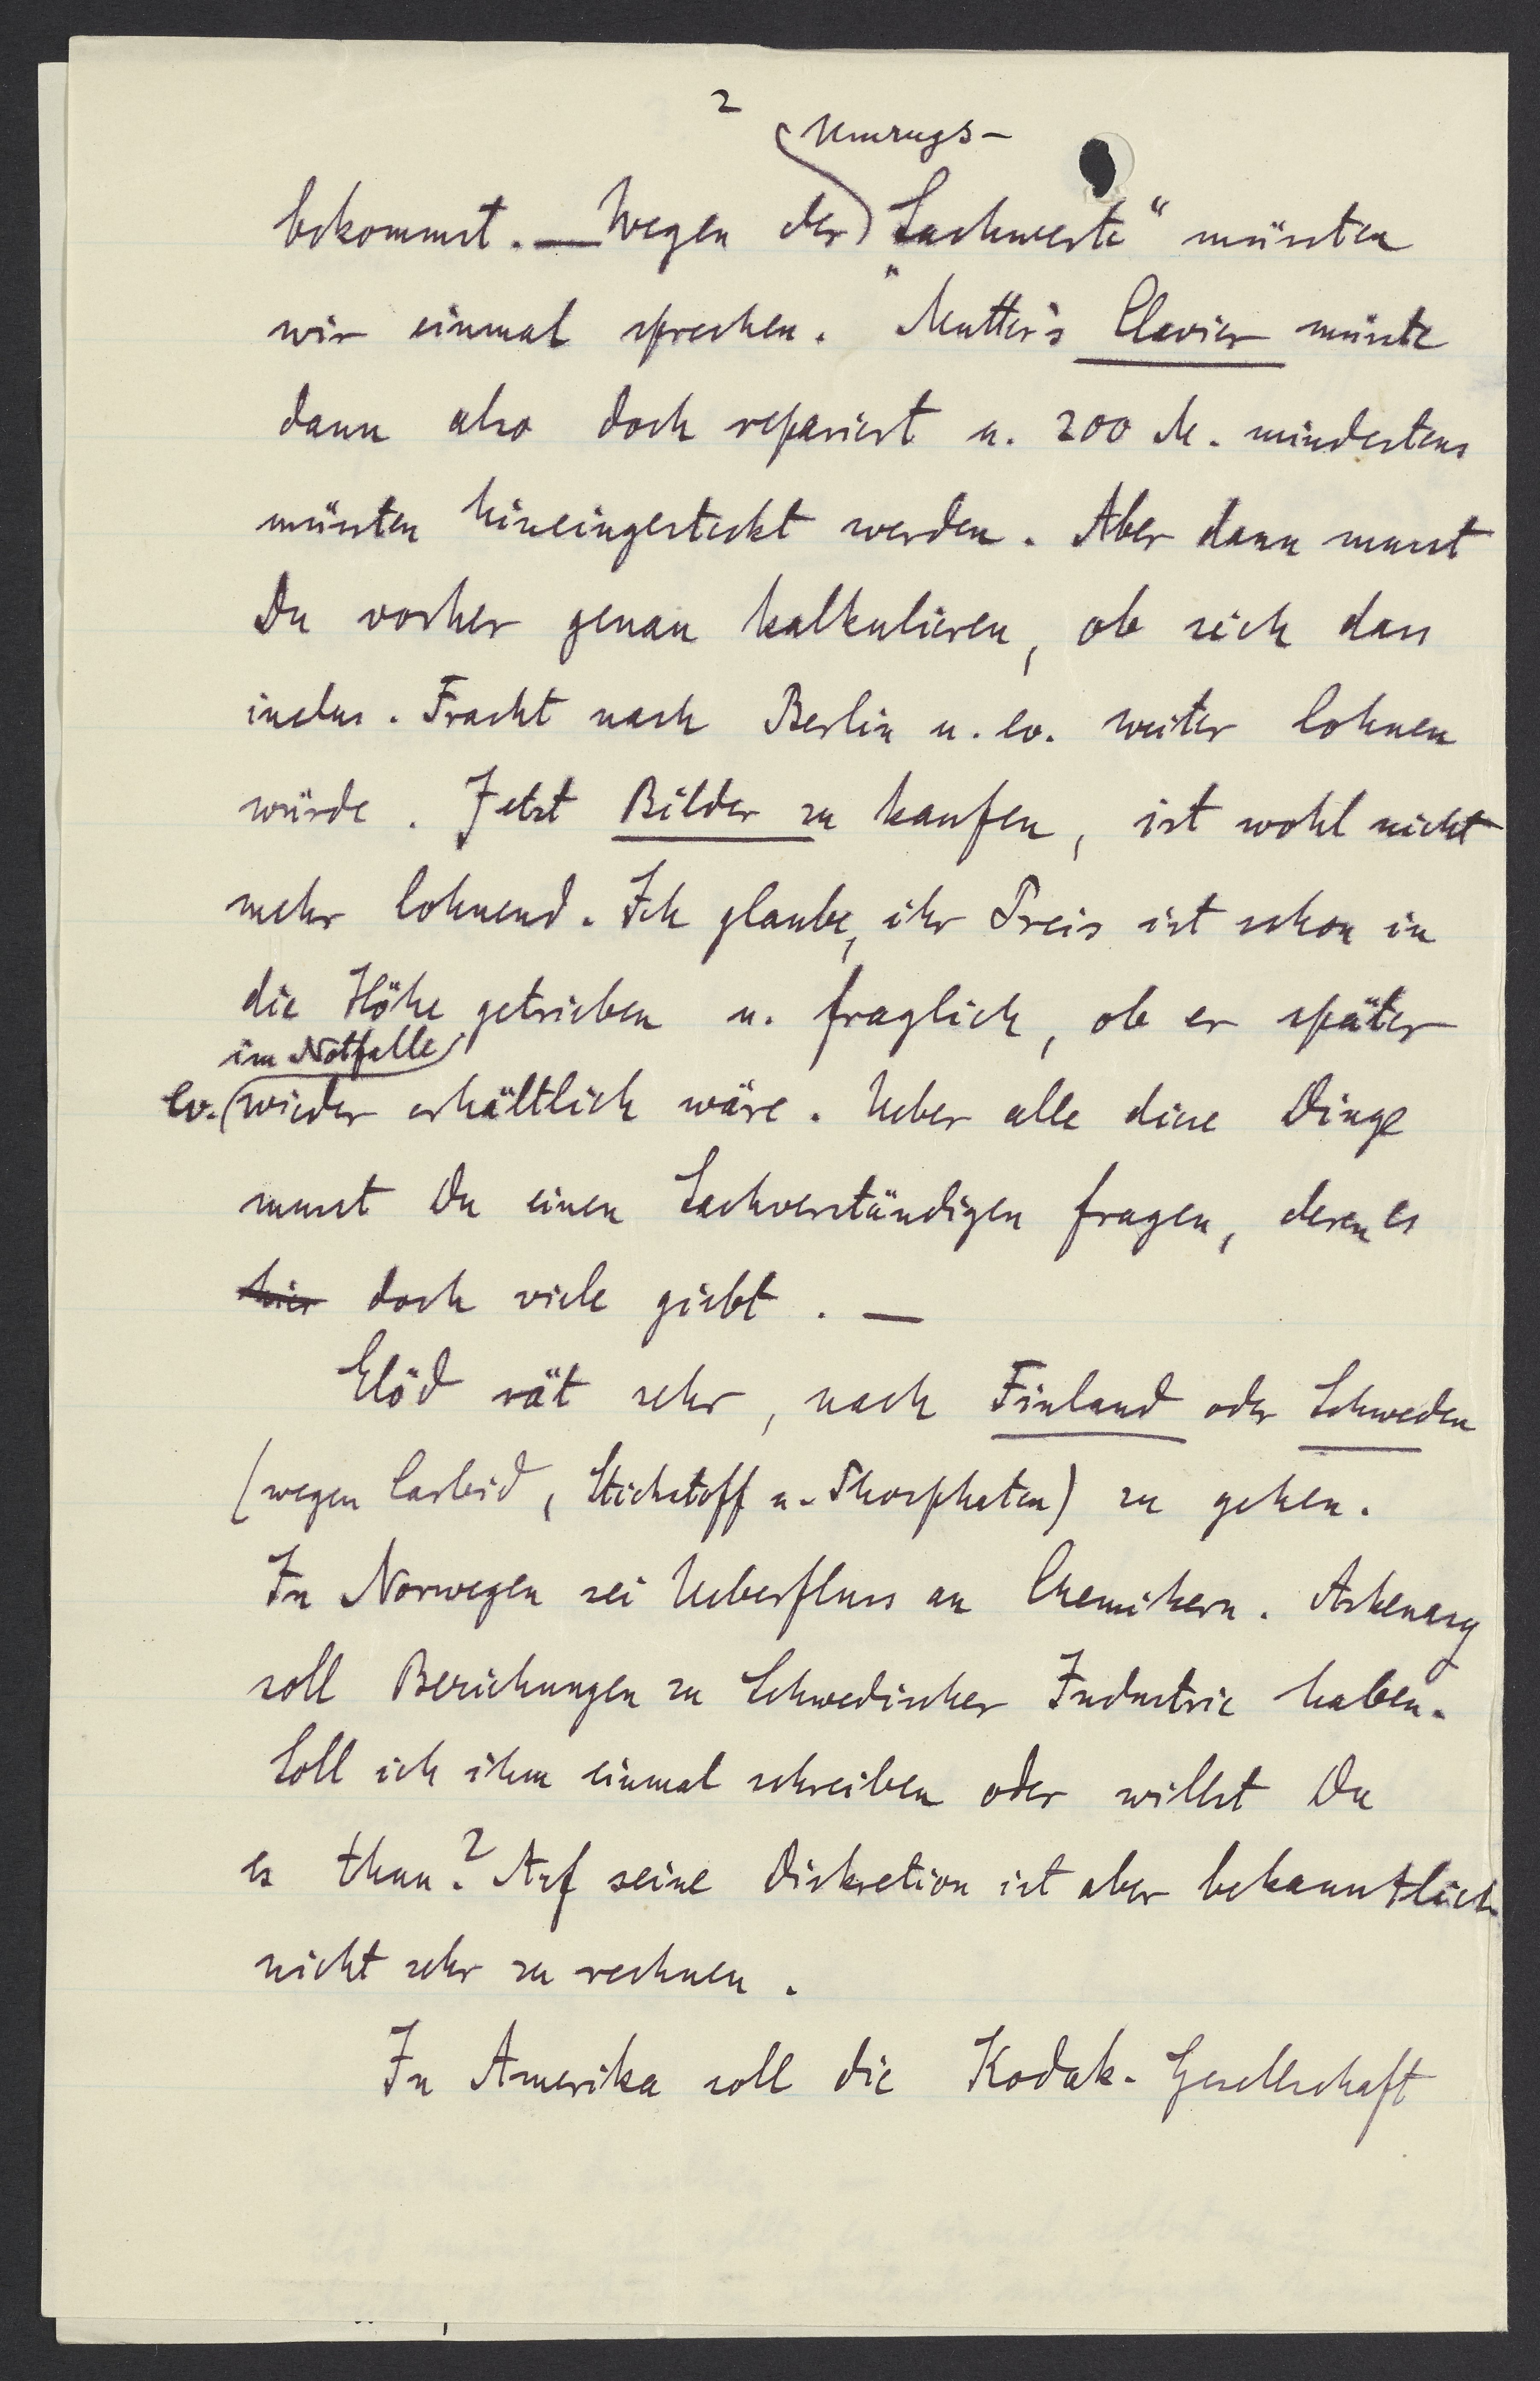 2
Umzugs-
bekommst. — Wegen der „Sachwerte“ müssten
wir einmal sprechen. Mutter's Clavier müsste
dann also doch repariert u. 200 M. mindestens
müssten hineingesteckt werden. Aber dann musst
Du vorher genau kalkulieren, ob sich dass
inclus. Fracht nach Berlin u. ev. weiter lohnen
würde. Jetzt Bilder zu kaufen, ist wohl nicht
mehr lohnend. Ich glaube, ihr Preis ist schon in
die Höhe getrieben u. fraglich, ob er später
im Notfalle
ev. wieder erhältlich wäre. Ueber alle diese Dinge
musst Du einen Sachverständigen fragen, deren es
hier doch viele giebt. —
Elöd rät sehr, nach Finland oder Schweden
(wegen Carbid, Stickstoff u. Phosphaten) zu gehen.
In Norwegen sei Ueberfluss an Chemikern. Askenasy
soll Beziehungen zu Schwedischer Industrie haben.
Soll ich ihm einmal schreiben oder willst Du
es thun? Auf seine Diskretion ist aber bekanntlich
nicht sehr zu rechnen.
In Amerika soll die Kodak-Gesellschaft